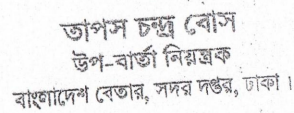 তাপস চন্দ্র বোস
উপ-বার্তা নিয়ন্ত্রক
বাংলাদেশ বেতার, সদর দপ্তর, ঢাকা।